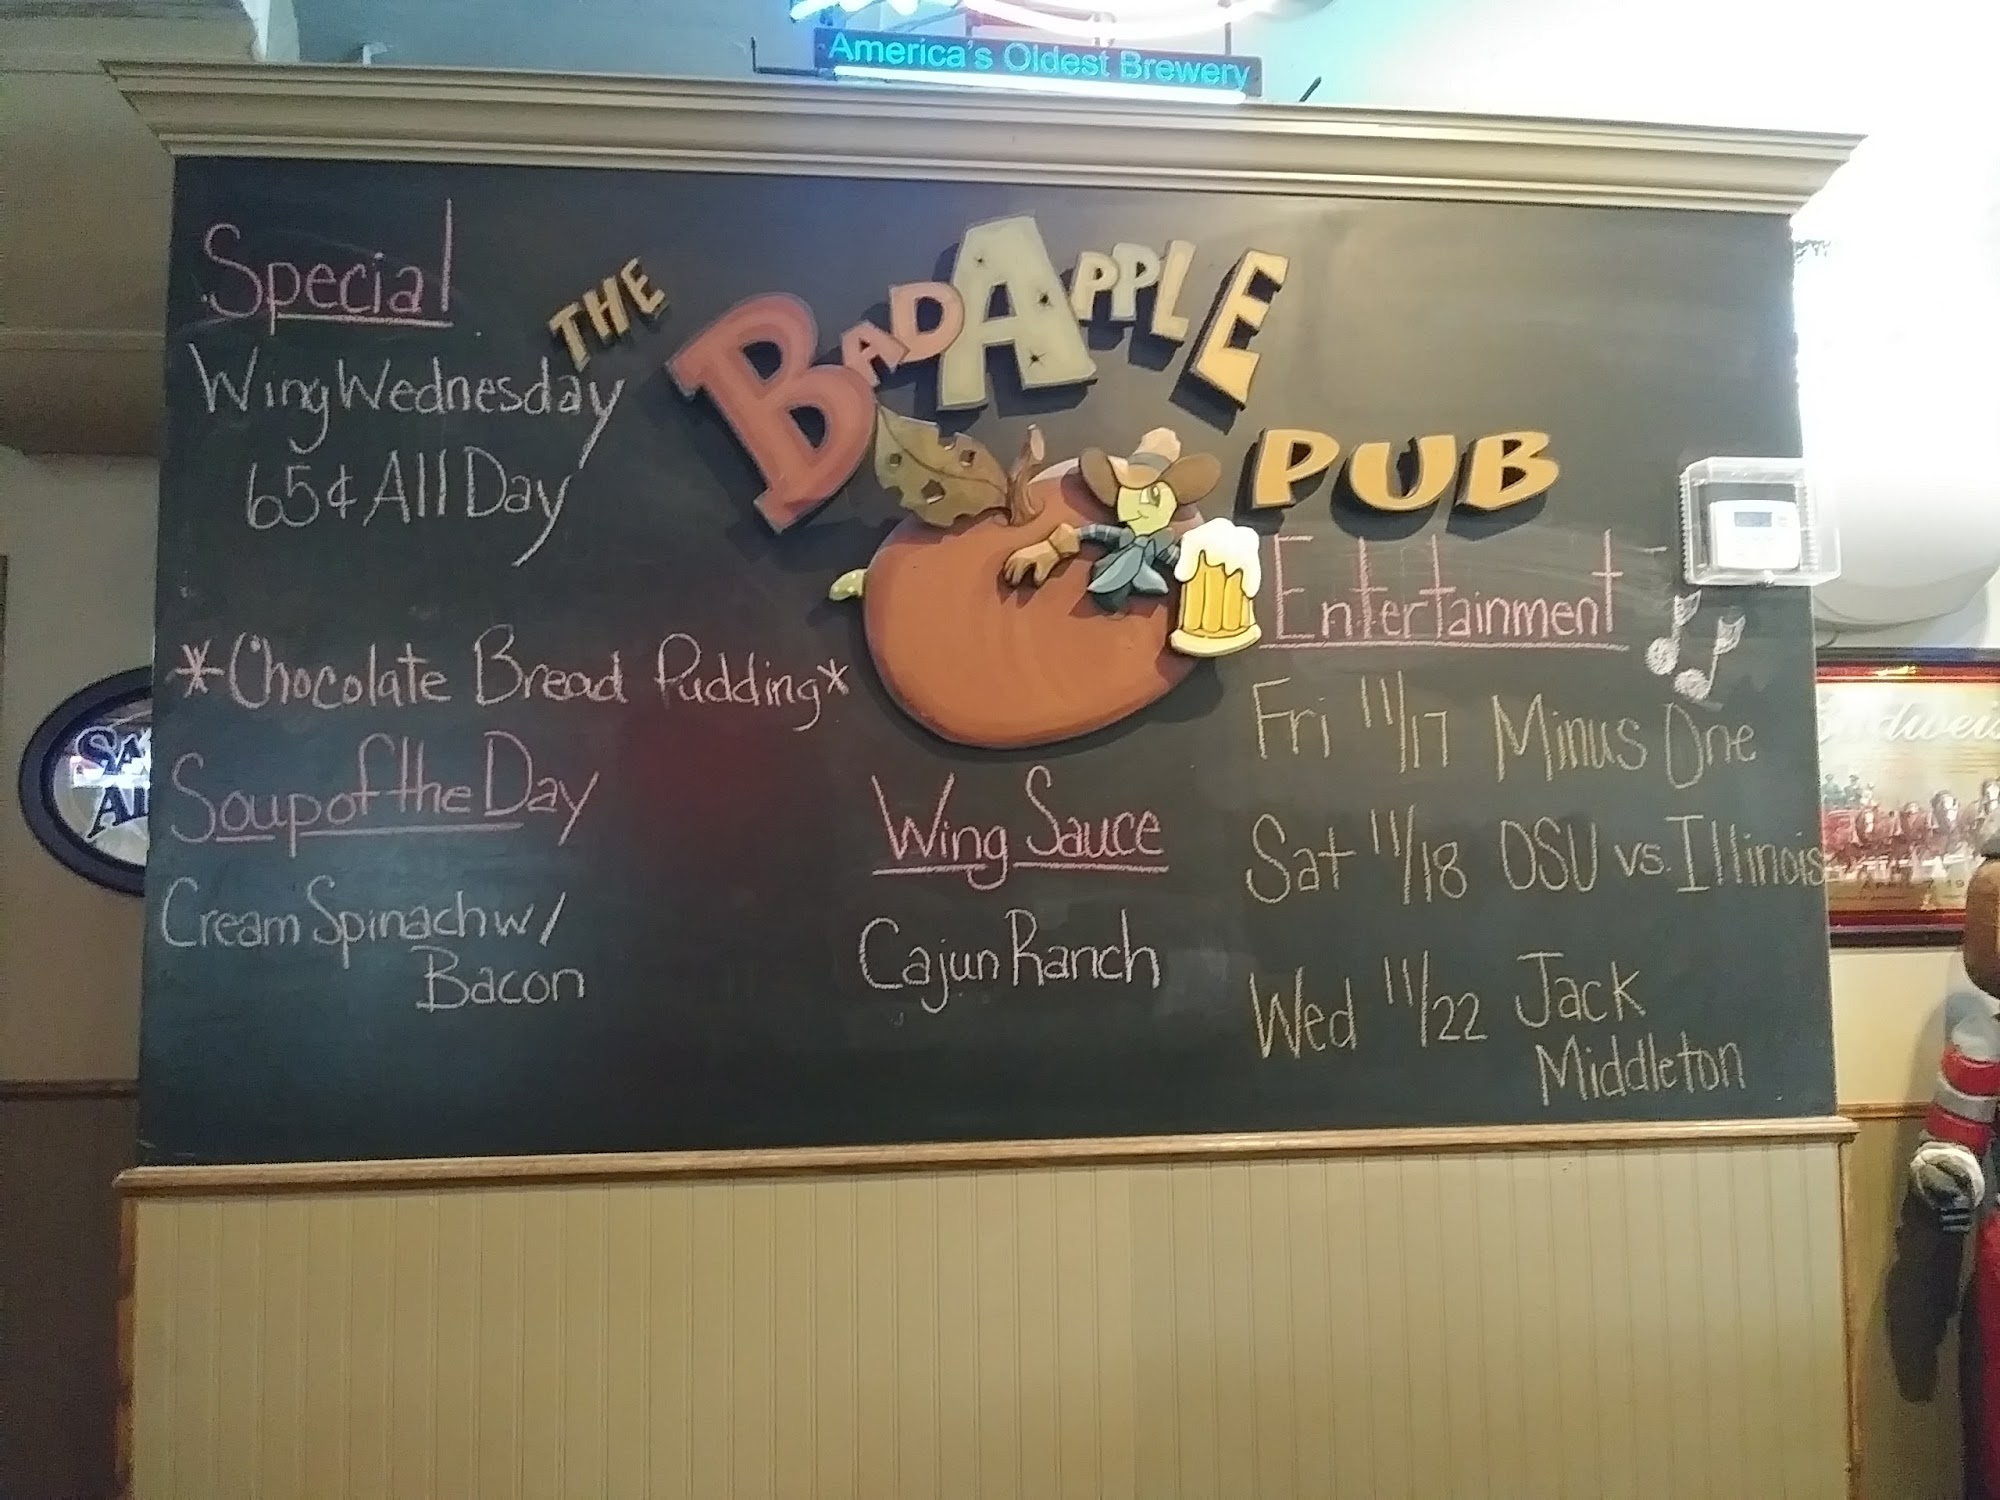 America's Oldest Brewery
THE BAD APPLE
PUB
Special
Wing Wednesday
65¢ All Day
*Chocolate Bread Pudding*
Soup of the Day
Cream Spinach w/
Bacon
Wing Sauce
Cajun Ranch
Entertainment
Fri 11/17 Minus One
Sat 11/18 OSU vs. Illinois
Wed 11/22 Jack
Middleton